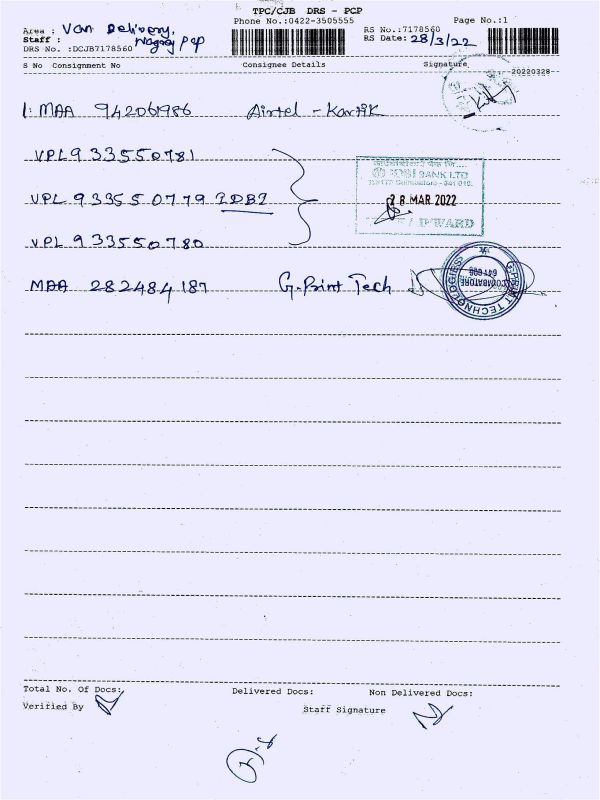 TPC/CJB DRS - PCP
Phone No.:0422-3505555
Page No.:1
Area : Van Delivery,
Staff :
DRS No. :DCJB7178560
RS No.:7178560
RS Date: 28/3/22
S No Consignment No Consignee Details Signature
20220328
1. MAA 942061986 Airtel - Kartik
VPL 933550781
VPL 933550779 IDBI
VPL 933550780
IDBI BANK LTD
28 MAR 2022
INWARD
MAA 282484187 G-Print Tech
G-PRINT TECHNOLOGIES
COIMBATORE
Total No. Of Docs: Delivered Docs: Non Delivered Docs:
Verified By Staff Signature